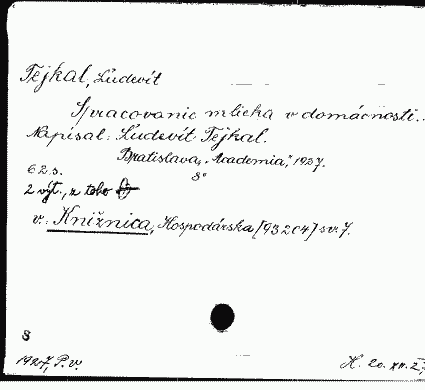 Tejkal, Ľudevít
Spracovanie mlieka v domácnosti..
Napísal: Ľudevít Tejkal.
Bratislava, „Academia", 1927.
62 s. 8°
2 výt., z toho
v: Knižnica, Hospodárska [93204] sv. 7.
8
1927, P. v.
H. 20. XII. 27.